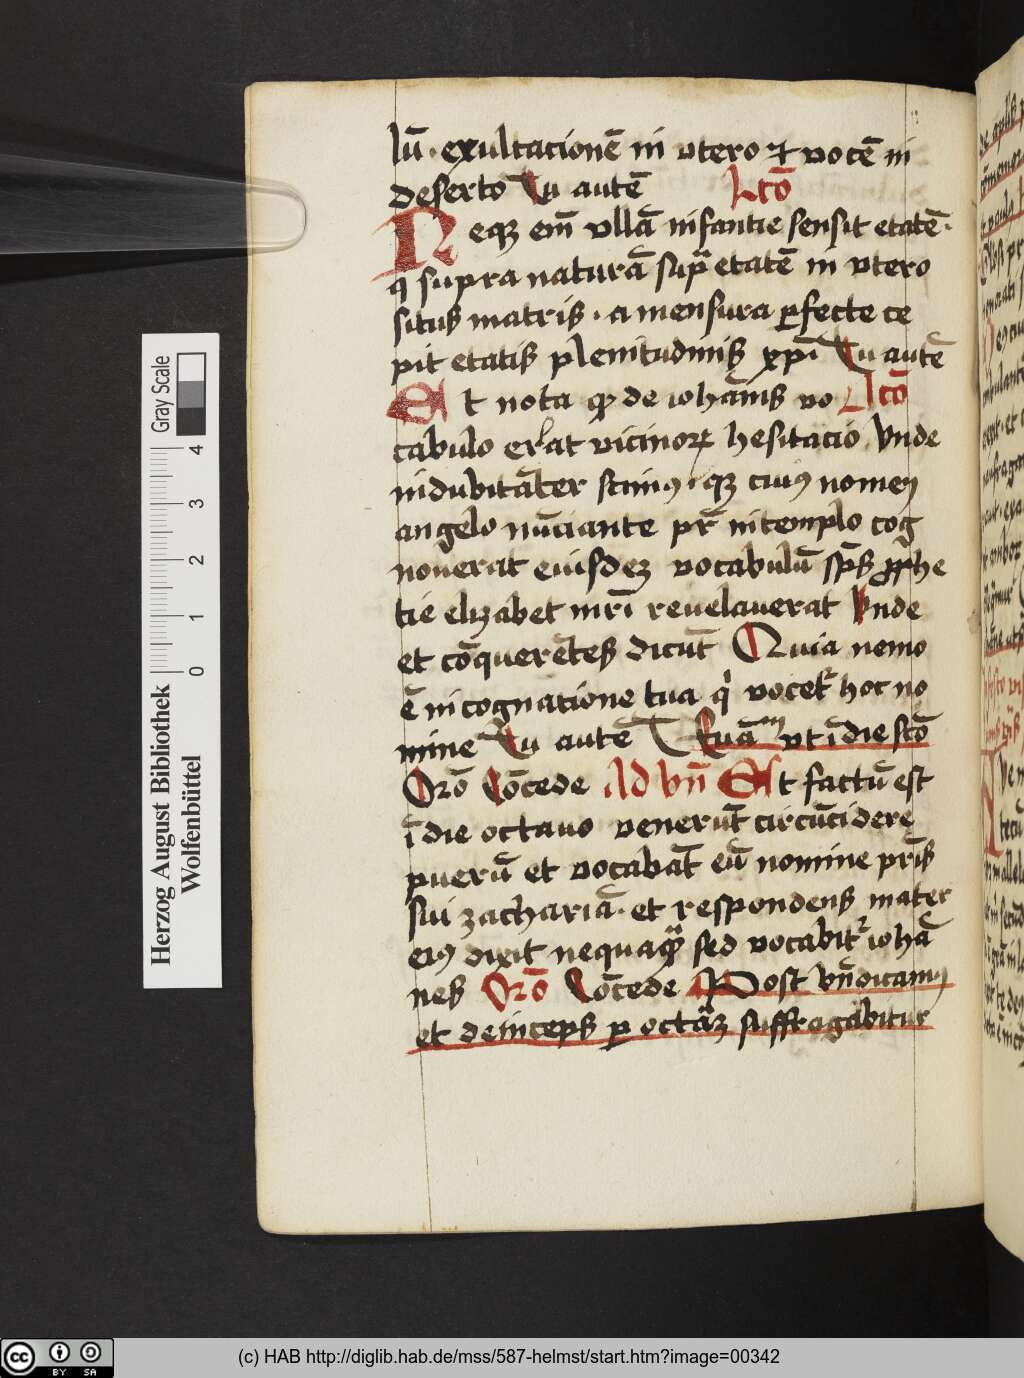 lū · exultacionē in vtero ⁊ vocē in
deserto Tu autē Lc̄o
Neqꝫ em̄ vllā infantie sensit etatē ·
q̄ supra naturā sup̄ etatē in vtero
situs matris · a mensura ꝑfecte ce
pit etatis plenitudinis xp̄i Tu autē
Et nota ꝙ de ioha̅nis vo Lc̄o
cabulo erat vicinoꝝ hesitacio Vnde
indubita̅ter scimꝰ · qꝫ cuiꝰ nomen
angelo nū̅ciante pr̄ in templo cog
nouerat eiusdeꝫ vocabulū sp̄s ꝓphe
tie elizabet mr̄i reuelauerat Vnde
et cōquerētes dicūt Quia nemo
ē in cognatione tua qͥ vocetʳ hoc no
mine Tu autē T Euāᵐ vt ī die sc̄o
Orō Cōcede Ad vn̄ Et factū est
ī die octauo venerūt circūcidere
puerū et vocabāt eū nomine pr̄is
sui zachariā · et respondens mater
eiꝰ dixit nequaꝙᷓ sed vocabitʳ iohā
nes Orō Cōcede Post vn̄dicamꝰ
et deinceps ꝑ octāꝫ suffragabitur
Herzog August Bibliothek
Wolfenbüttel
Gray Scale
0 1 2 3 4
cc BY SA
(c) HAB http://diglib.hab.de/mss/587-helmst/start.htm?image=00342